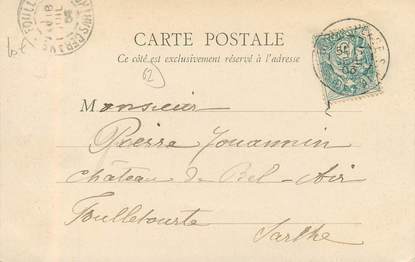 CARTE POSTALE
Ce côté est exclusivement réservé à l'adresse
62
Monsieur
Pierre Jouannin
Château de Bel-Air
Foulletourte
Sarthe